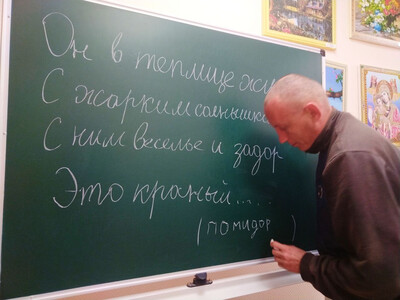 Он в теплице
С жарким солнышко
С ним веселье и задор
Это краный....
(помидор )